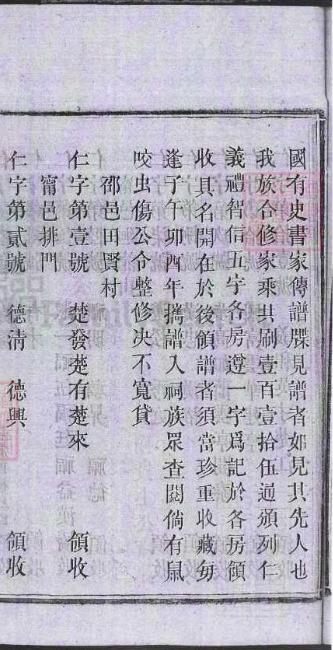 國有史書家傳譜牒見譜者如見其先人也
我族合修家乘共刷壹百壹拾伍通頒列仁
義禮智信五字各房遵一字爲記於各房領
收其名開在於後領譜者須當珍重收藏毋
逢子午卯酉年携譜入祠族眾查閱倘有鼠
咬虫傷公仝整修决不寬貸
邵邑田賢村
仁字第壹號 楚發楚有楚來 領收
甯邑排門
仁字第貳號 德清 德興 領收